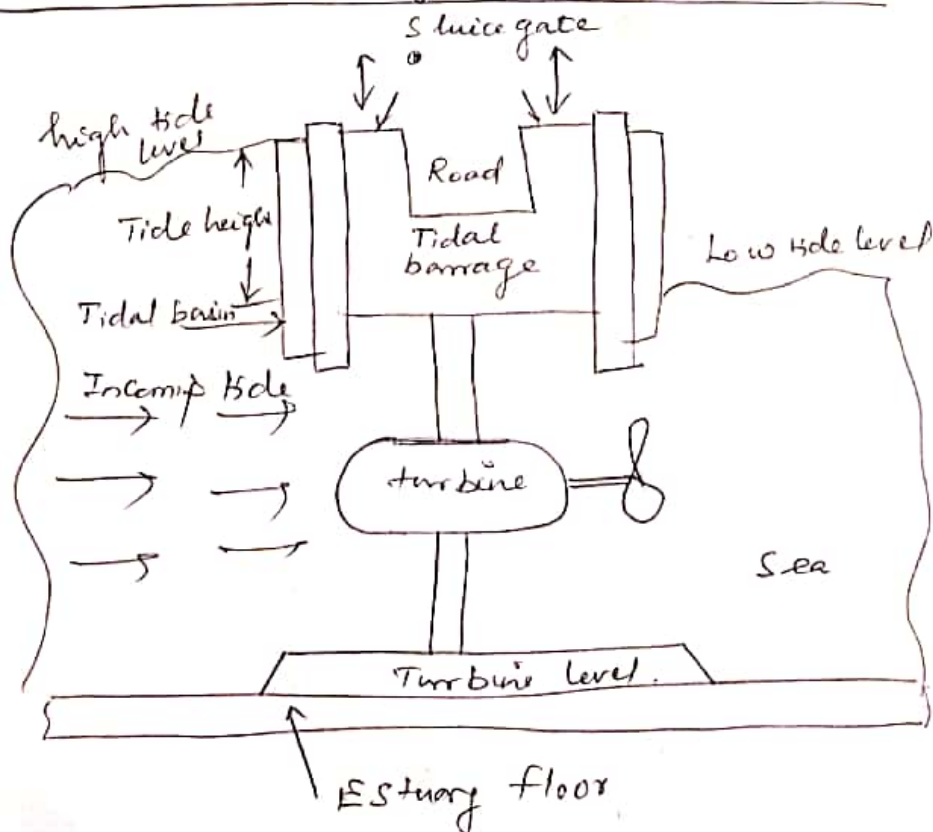 Sluice gate
high tide
level
Road
Tide height
Tidal
barrage
Low tide level
Tidal basin
Incoming tide
turbine
Sea
Turbine level.
Estuary floor